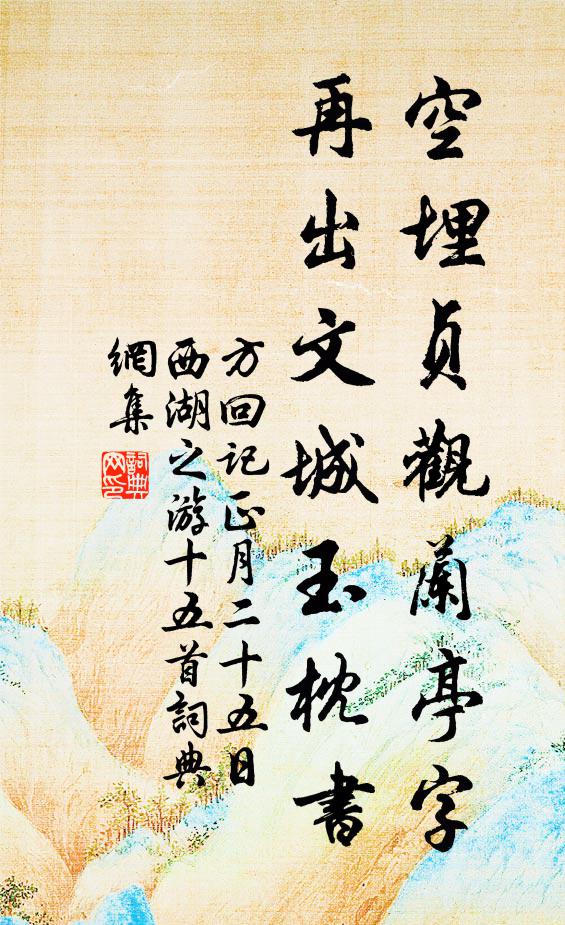 空埋貞觀蘭亭字
再出文城玉枕書
方回記正月二十五日
西湖之游十五首詞典
網集
詞典網印